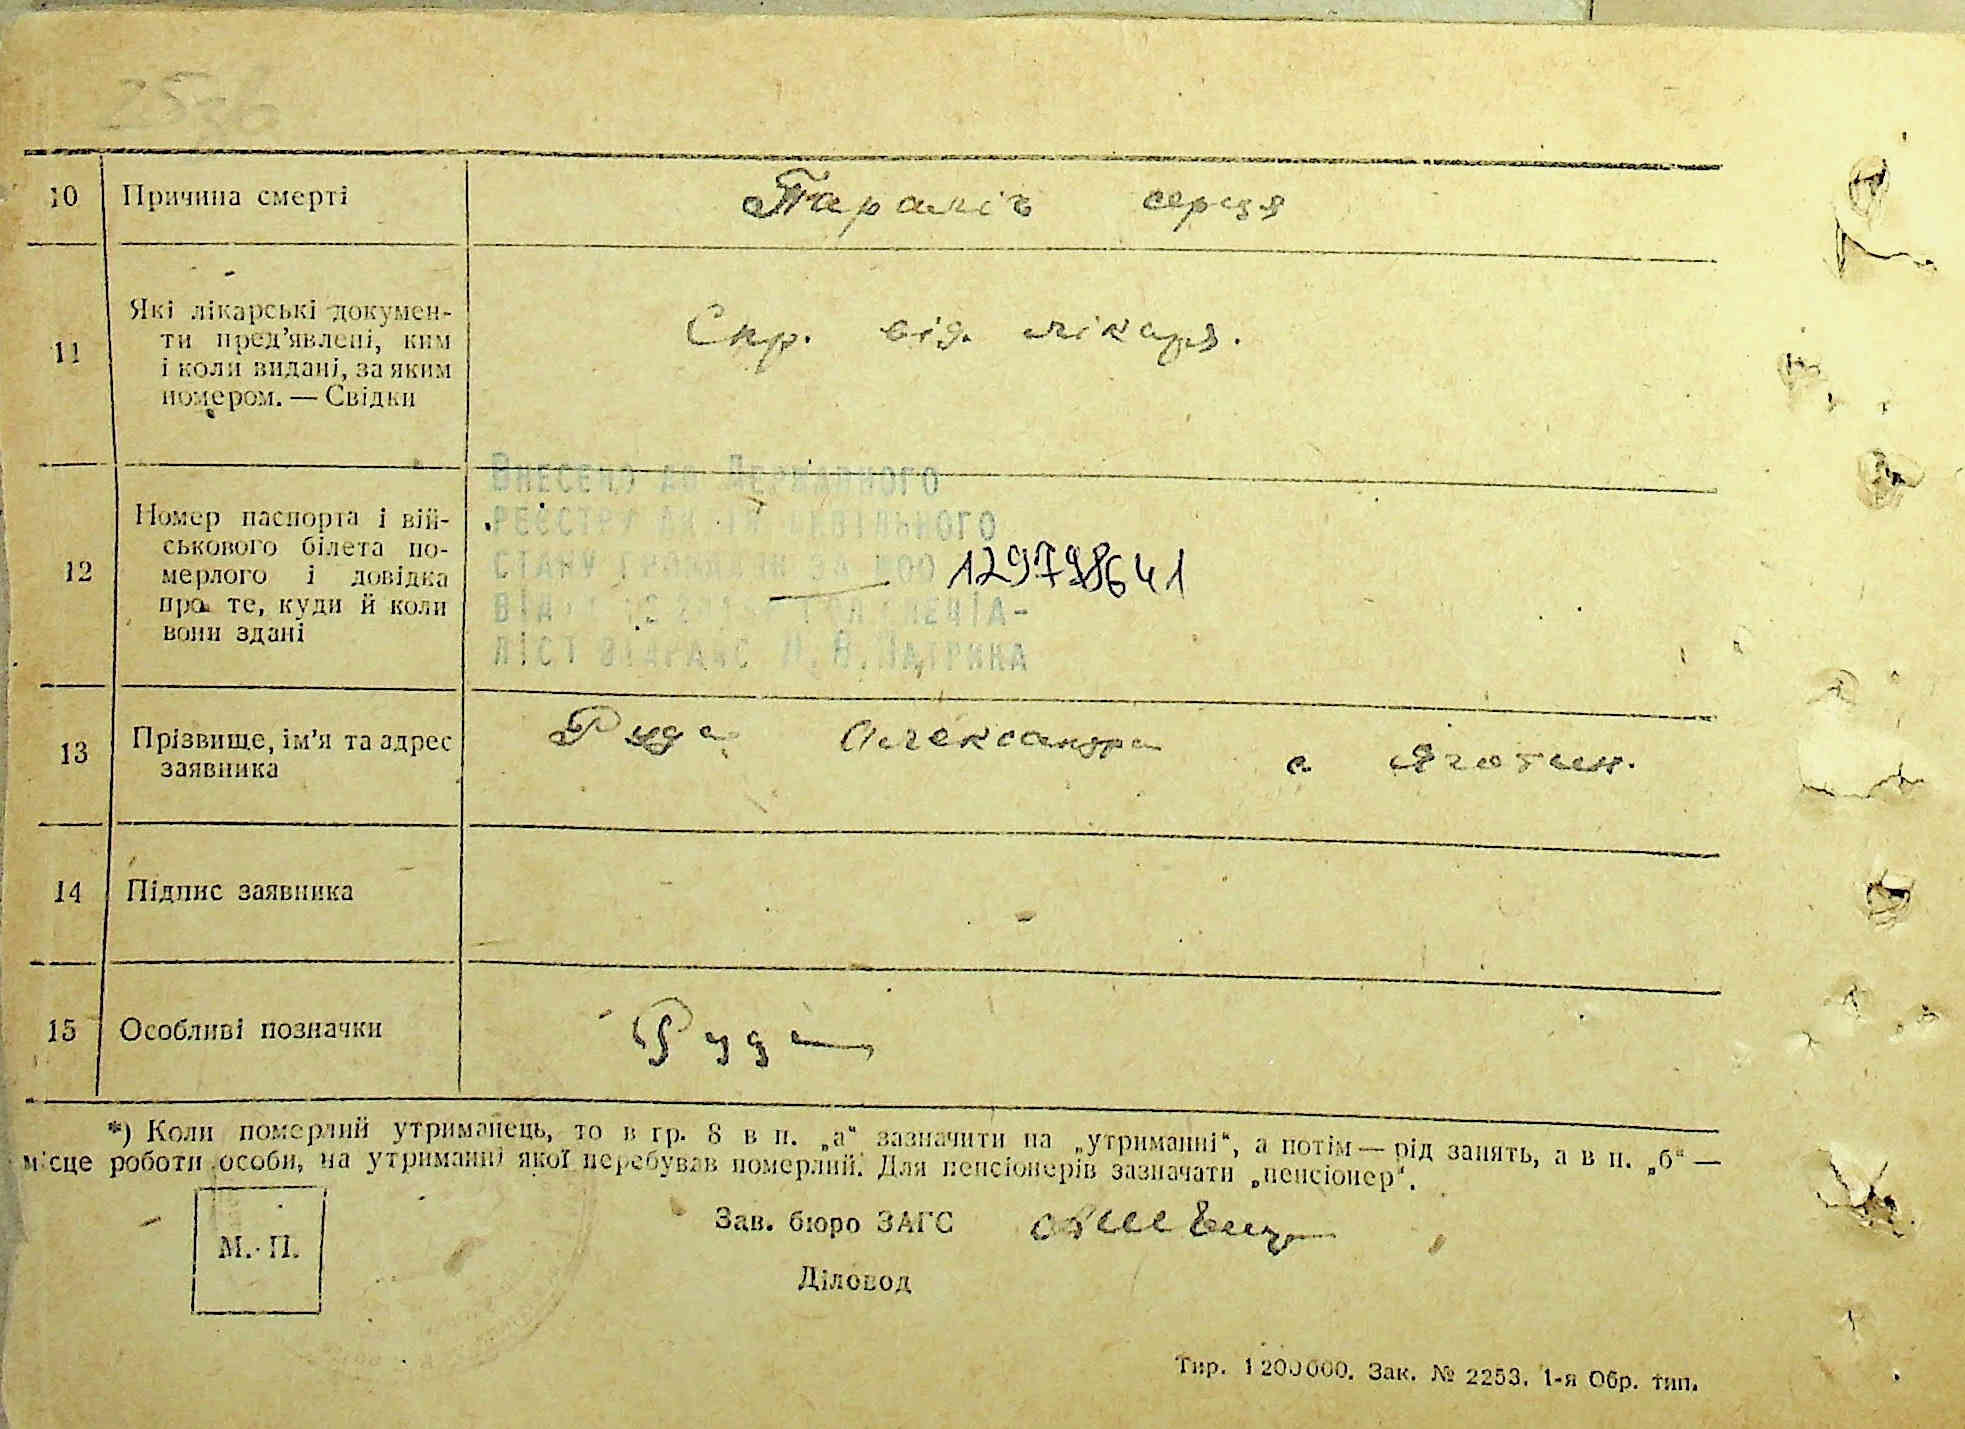 10 Причина смерті Параліч серця
11 Які лікарські докумен-
ти пред'явлені, ким
і коли видані, за яким
номером. — Свідки
Скр. від. лікаря.
12 Номер паспорта і вій-
ськового білета по-
мерлого і довідка
про те, куди й коли
вони здані
Внесено до Державного
реєстру актів цивільного
стану громадян за №00 129798641
ліст В. Патрика
13 Прізвище, ім'я та адрес
заявника
Руда Александра с Яготин.
14 Підпис заявника
15 Особливі позначки Руда
*) Коли померлий утриманець, то в гр. 8 в п. „а“ зазначити на „утриманні“, а потім — рід занять, а в п. „б“ —
місце роботи особи, на утриманні якої перебував померлий. Для пенсіонерів зазначати „пенсіонер“.
М. П.
Зав. бюро ЗАГС
Діловод
Тир. 1200000. Зак. № 2253. 1-я Обр. тип.